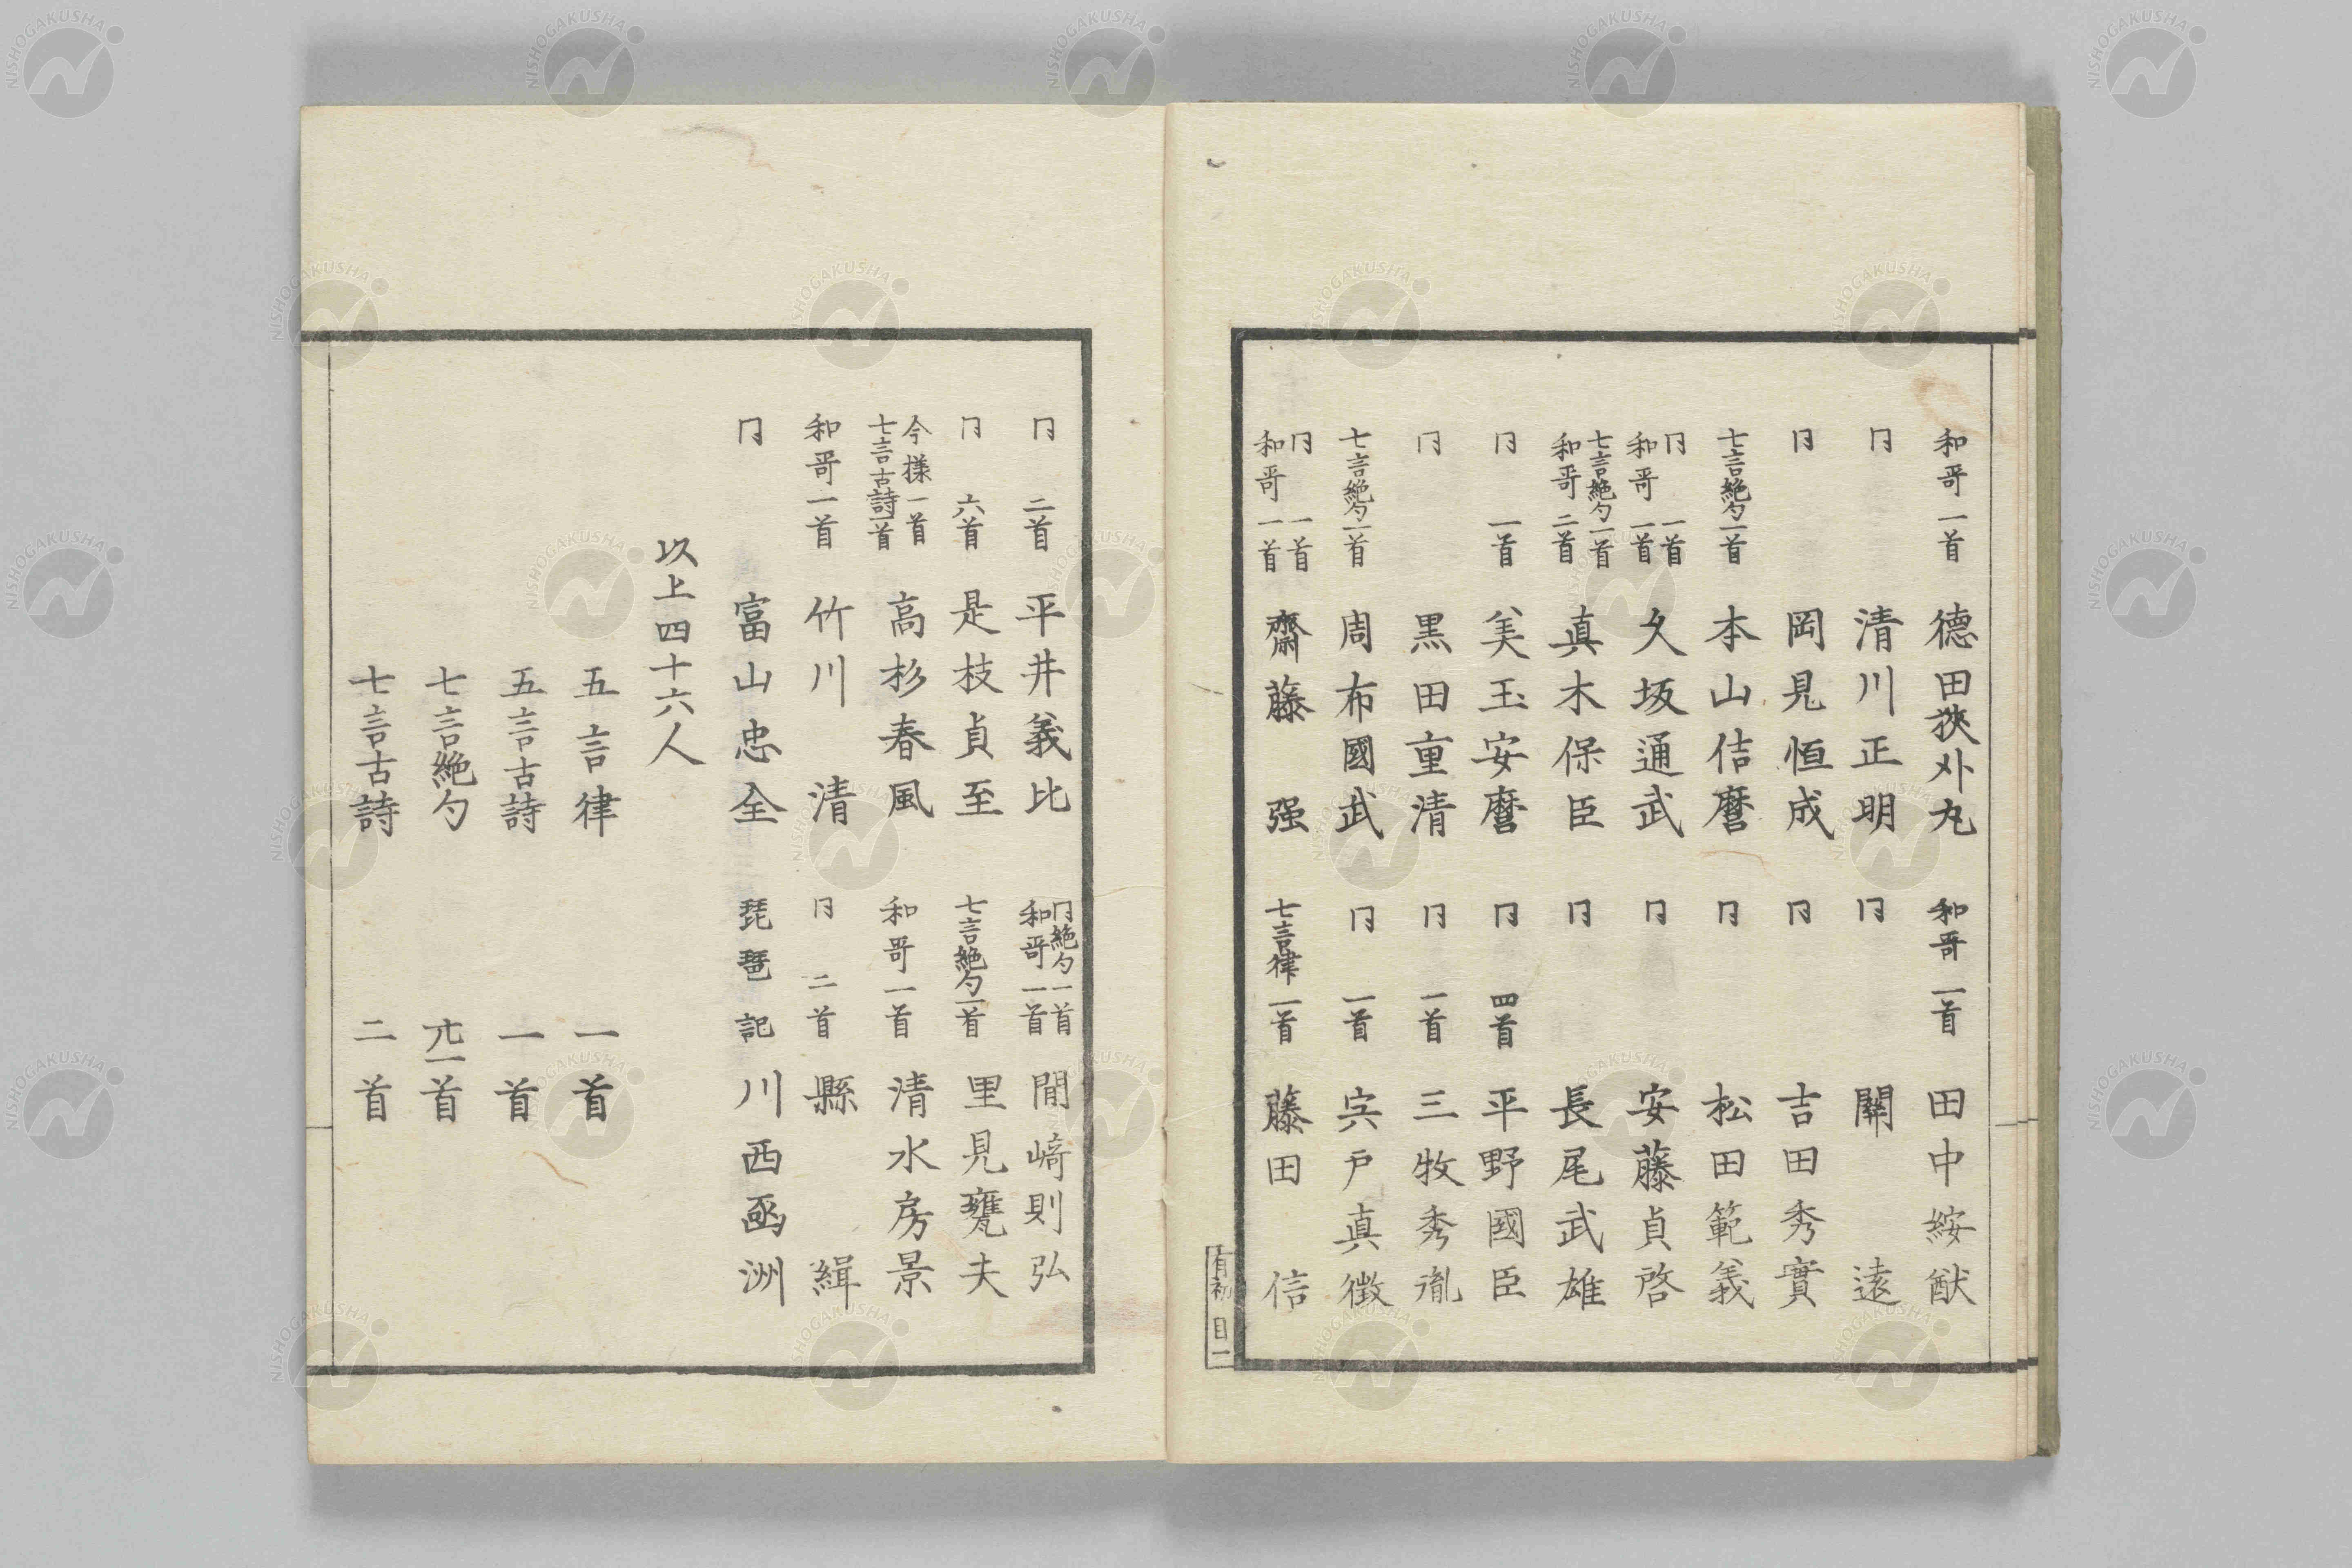 和哥一首 德田狹外丸 和哥一首 田中綏猷
冂 清川正明 冂 關遠
冂 岡見恒成 冂 吉田秀實
七言絶勺一首 本山佶麿 冂 松田範義
冂一首 和哥一首 久坂通武 冂 安藤貞啓
七言絶勺一首 和哥二首 真木保臣 冂 長尾武雄
冂一首 美玉安麿 冂四首 平野國臣
冂 黒田重清 冂一首 三牧秀胤
七言絶勺一首 周布國武 冂一首 宍戸真徴
冂一首 和哥一首 齋藤强 七言律一首 藤田信
有初 目一
冂二首 平井義比 冂絶勺一首 和哥一首 間﨑則弘
冂六首 是枝貞至 七言絶勺一首 里見甕夫
今樣一首 七言古詩一首 高杉春風 和哥一首 清水房景
和哥一首 竹川清 冂二首 縣緝
冂 富山忠全 琵琶記 川西函洲
以上四十六人
五言律 一首
五言古詩 一首
七言絶勺 卅一首
七言古詩 二首
NISHOGAKUSHA